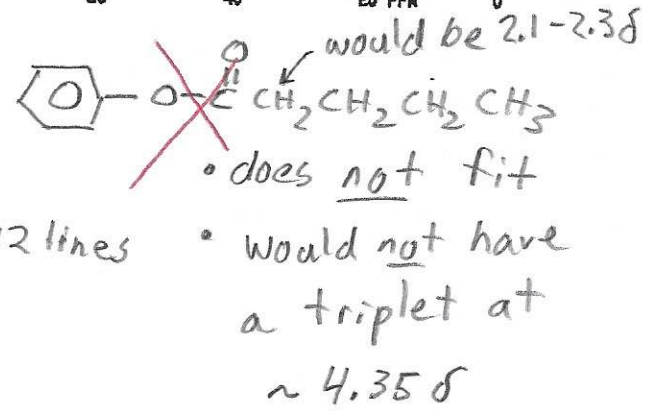 20 PPM 0
would be 2.1-2.3δ
O
O-C CH2 CH2 CH2 CH3
• does not fit
2 lines • would not have
a triplet at
~ 4.35 δ